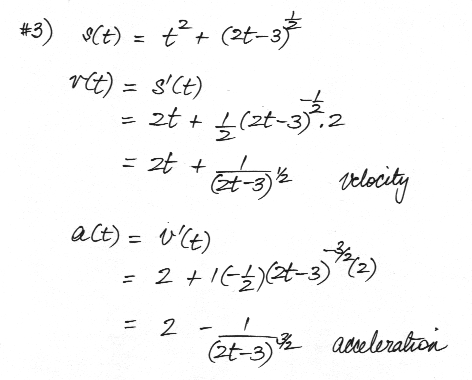 #3) s(t) = t² + (2t-3)^½
v(t) = s'(t)
= 2t + ½(2t-3)^-½ · 2
= 2t + 1/(2t-3)^½ velocity
a(t) = v'(t)
= 2 + 1(-½)(2t-3)^-3/2 (2)
= 2 - 1/(2t-3)^3/2 acceleration